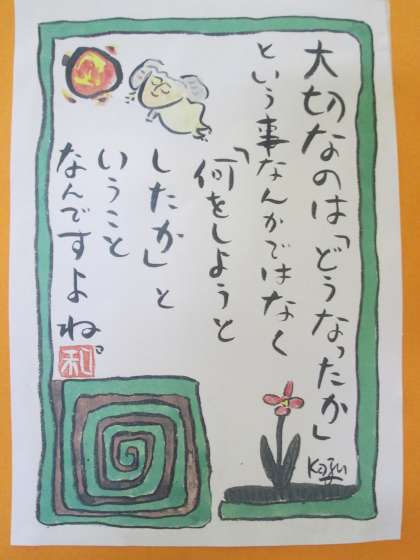 大切なのは「どうなったか」
という事なんかではなく
「何をしようと
したか」と
いうこと
なんですよね。